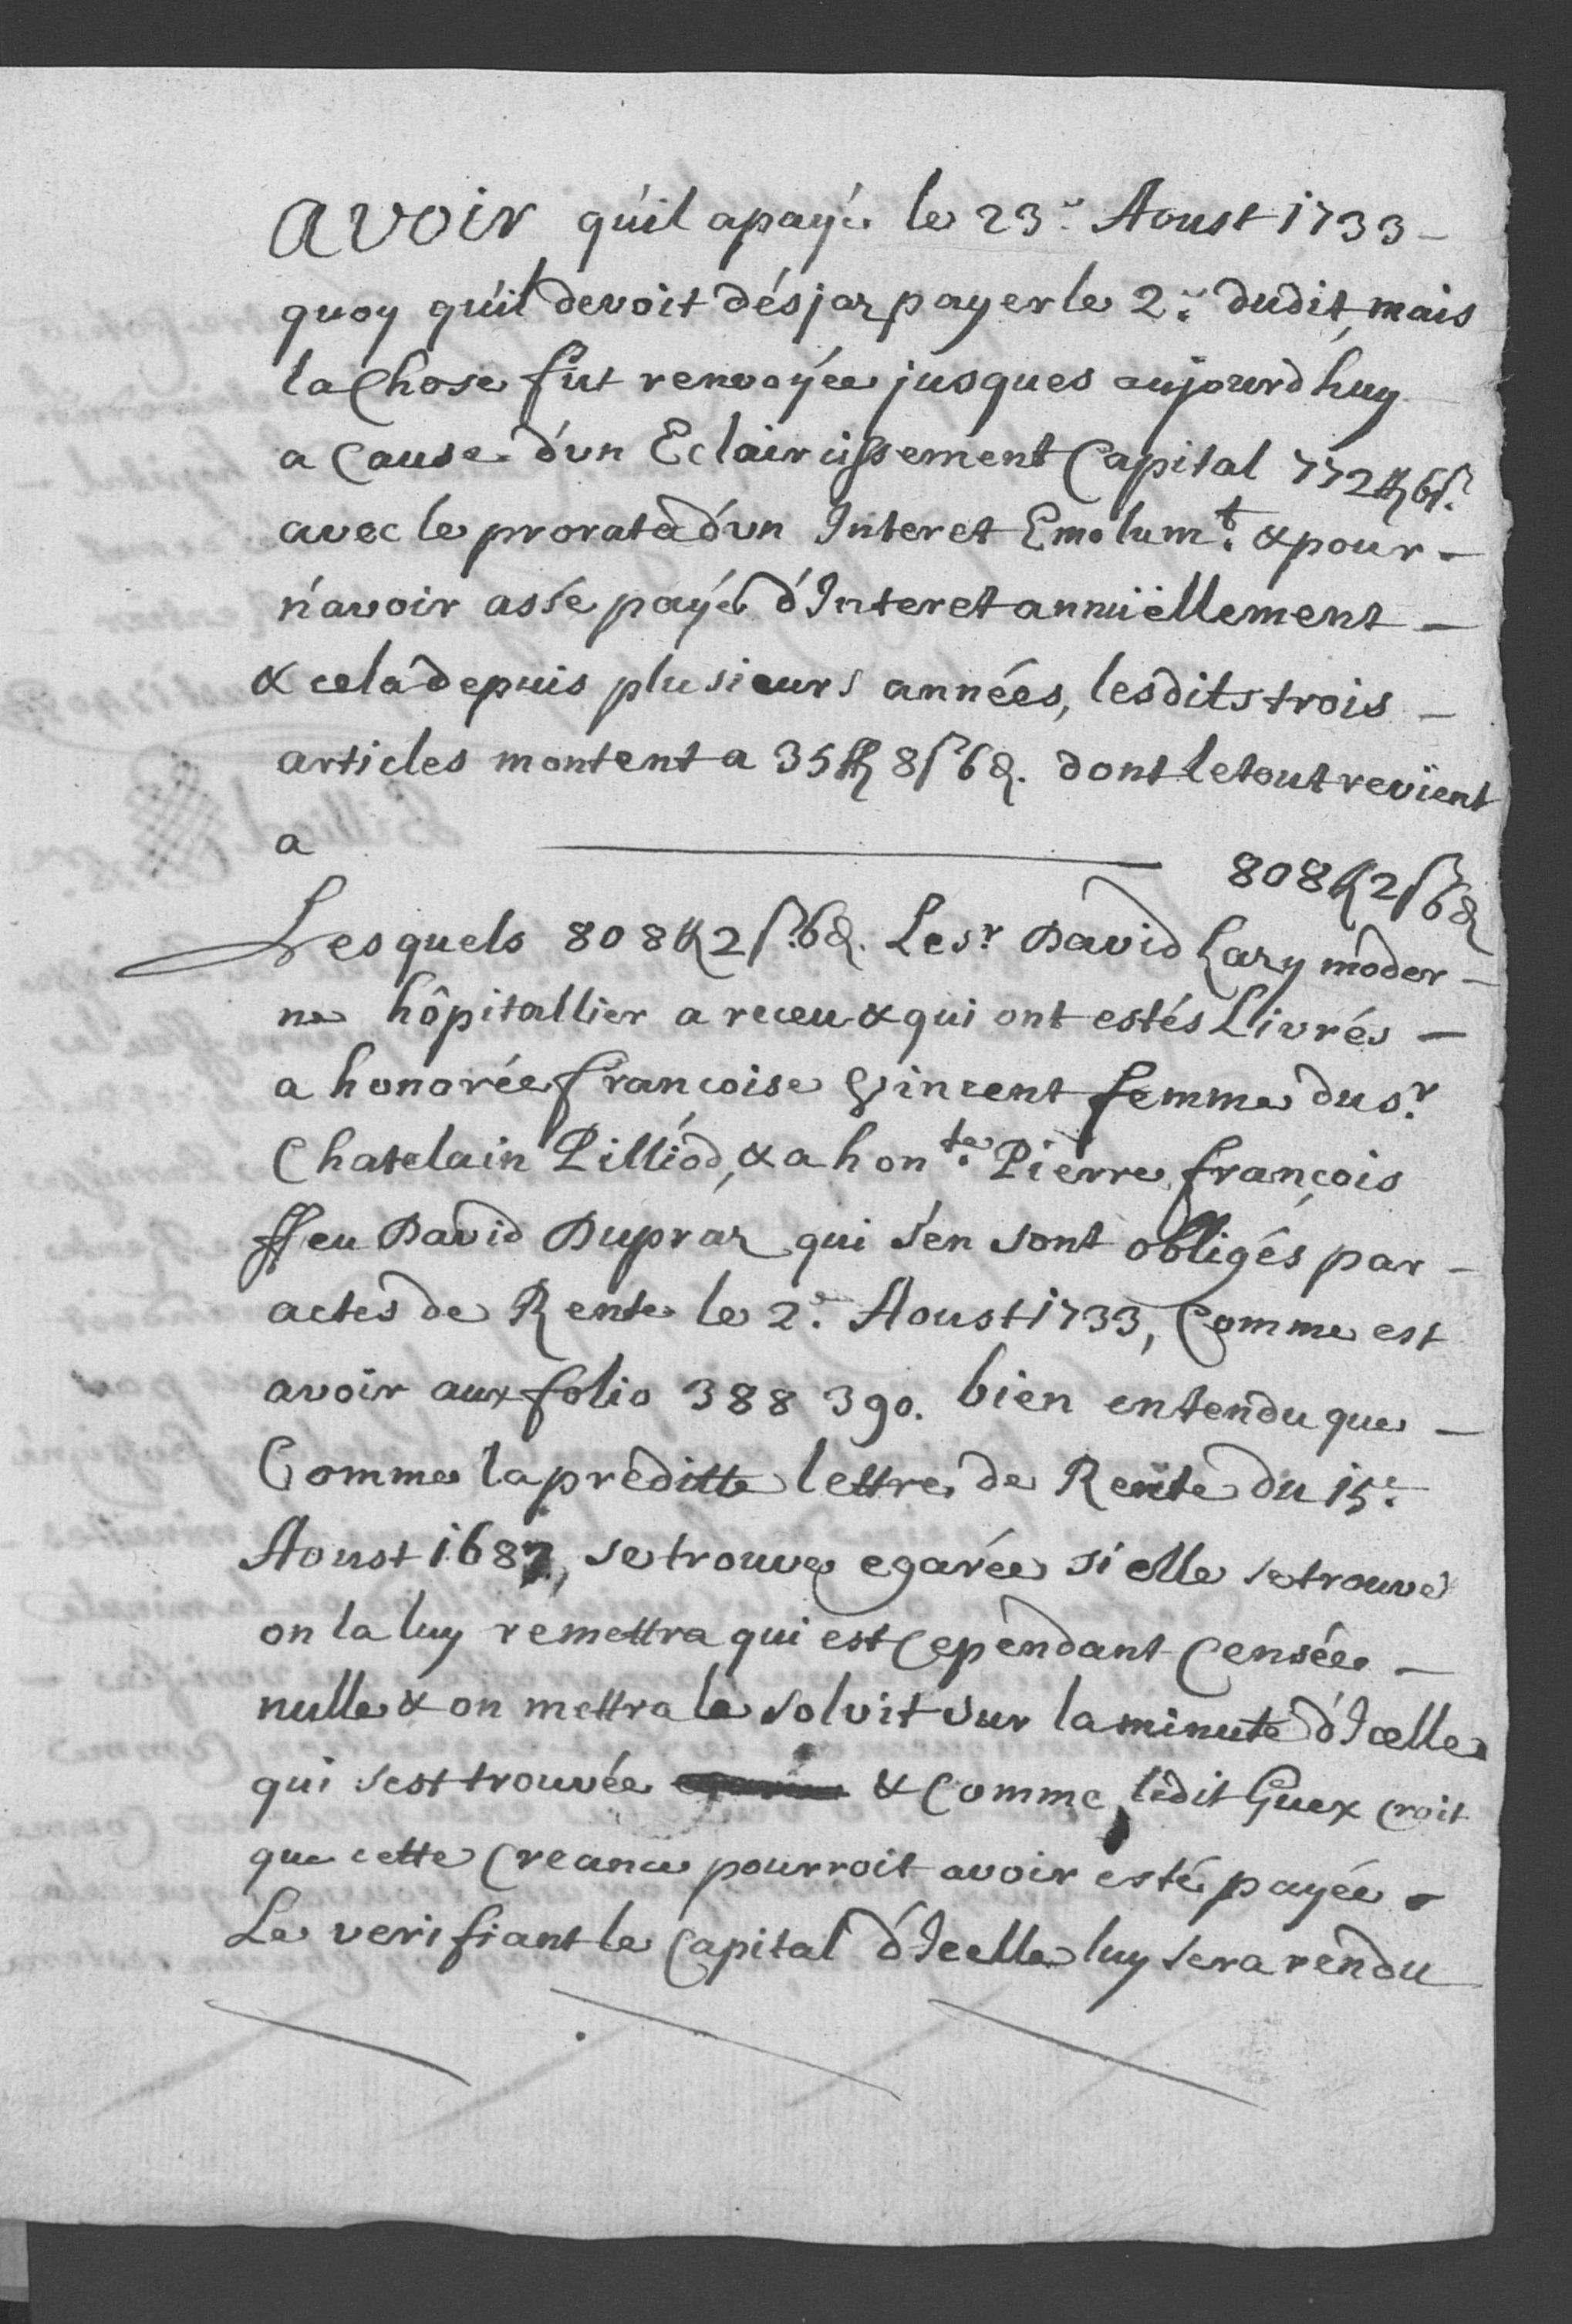 Avoir qu'il a payé le 23.e Aoust 1733 –
quoy qu'il devoit désjaz payer le 2.e dudit, mais
la Chose fut renvoÿée jusques aujourd'huy
a Cause d'un Eclaircissement Capital 772 ll 6 s.
avec le prorata d'un Interet Emolum.t & pour –
n'avoir assé payé d'Interet annüellement –
& cela depuis plusieurs années, lesdits trois –
articles montent a 35 ll 8 s 6 d. dont le tout revient
a ——— 808 ll 2 s 6 d
Lesquels 808 ll 2 s. 6 d. Le s.r David Lazy moder –
ne hôpitallier a receu & qui ont estés Livrés –
a honorée francoise Vincent femme du s.r
Chatelain Pilliód, & a hon.te Pierre françois
ffeu David Dupraz qui s'en sont obligés par –
actes de Rente le 2.e Aoust 1733, Comme est
avoir aux folio 388 390. bien entendu que –
Comme la préditte lettre de Rente du 15.e
Aoust 1687, se trouve egarée si elle se trouve
on la luy remettra qui est Cependant Censée –
nulle & on mettra le solvit sur la minute d'Icelle
qui s'est trouvée & Comme ledit Guex croit
que cette Creance pourroit avoir esté payée –
Le verifiant le Capital d'Icelle luy sera rendu